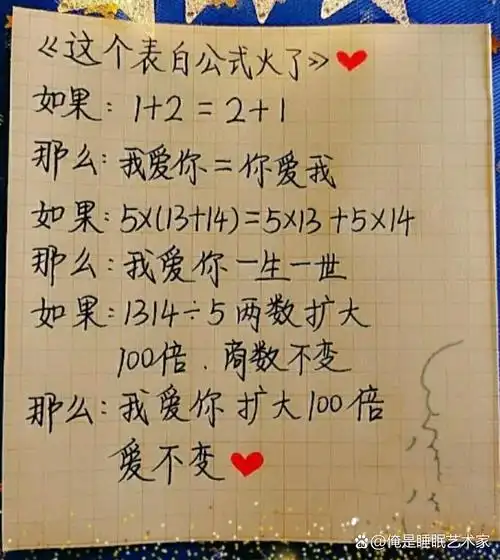 《这个表白公式火了》❤
如果: 1+2=2+1
那么: 我爱你=你爱我
如果: 5×(13+14)=5×13+5×14
那么: 我爱你一生一世
如果: 1314÷5两数扩大
100倍.商数不变
那么: 我爱你扩大100倍
爱不变❤
@俺是睡眠艺术家